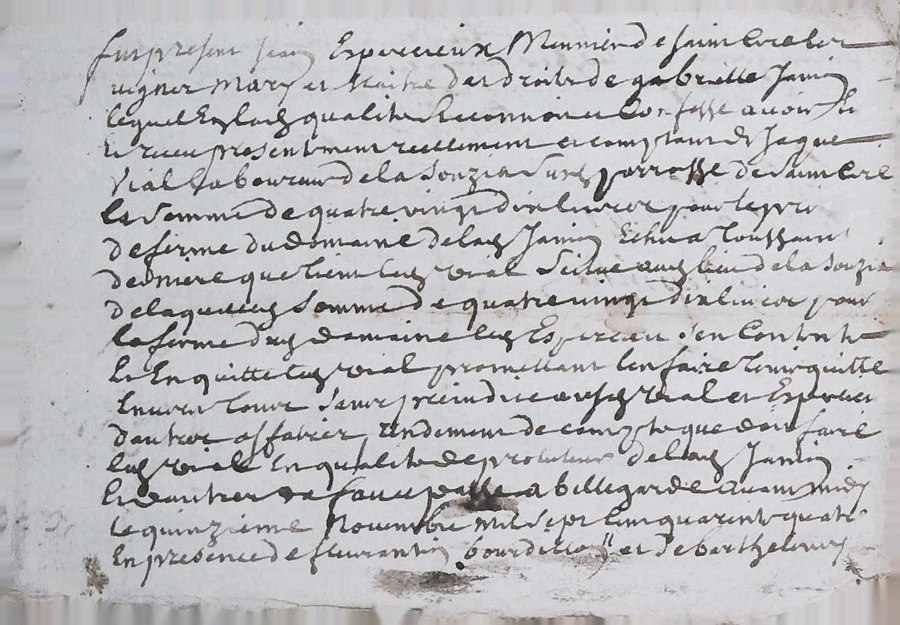 fut present jean Espercieux Meunier de saint Cire les
vignes Mary et Maitre des droits de gabrielle Janin
lequel En lad qualité Reconnoit et Confesse avoir
et receu presentement reellement et comptant de Jaque
Vial laboureur de la Sonzia Susd parroisse de Saint Cire
la Somme de quatre vingt dix livres pour le pris
de ferme du domaine de lad Janin Echu a toussaint
derniere que tient led vial Scitué aud lieu de la Sonzia
de laquelle Somme de quatre vingt dix livres pour
la ferme dud domaine led Espercieu s'en Contente
Et En quitte led vial promettant l'en faire tenir quitte
Envers tous Sans preiudice ausd vial et Espercieu
d'autres affaires rendement de compte que doit faire
led vial En qualité de protuteur de lad Janin
Et d'autres fait et passé a bellegarde avant midy
le quinzieme Novembre mil sept Cent quarente quatre
En presence de fleurantin bourdillon et de barthelemy